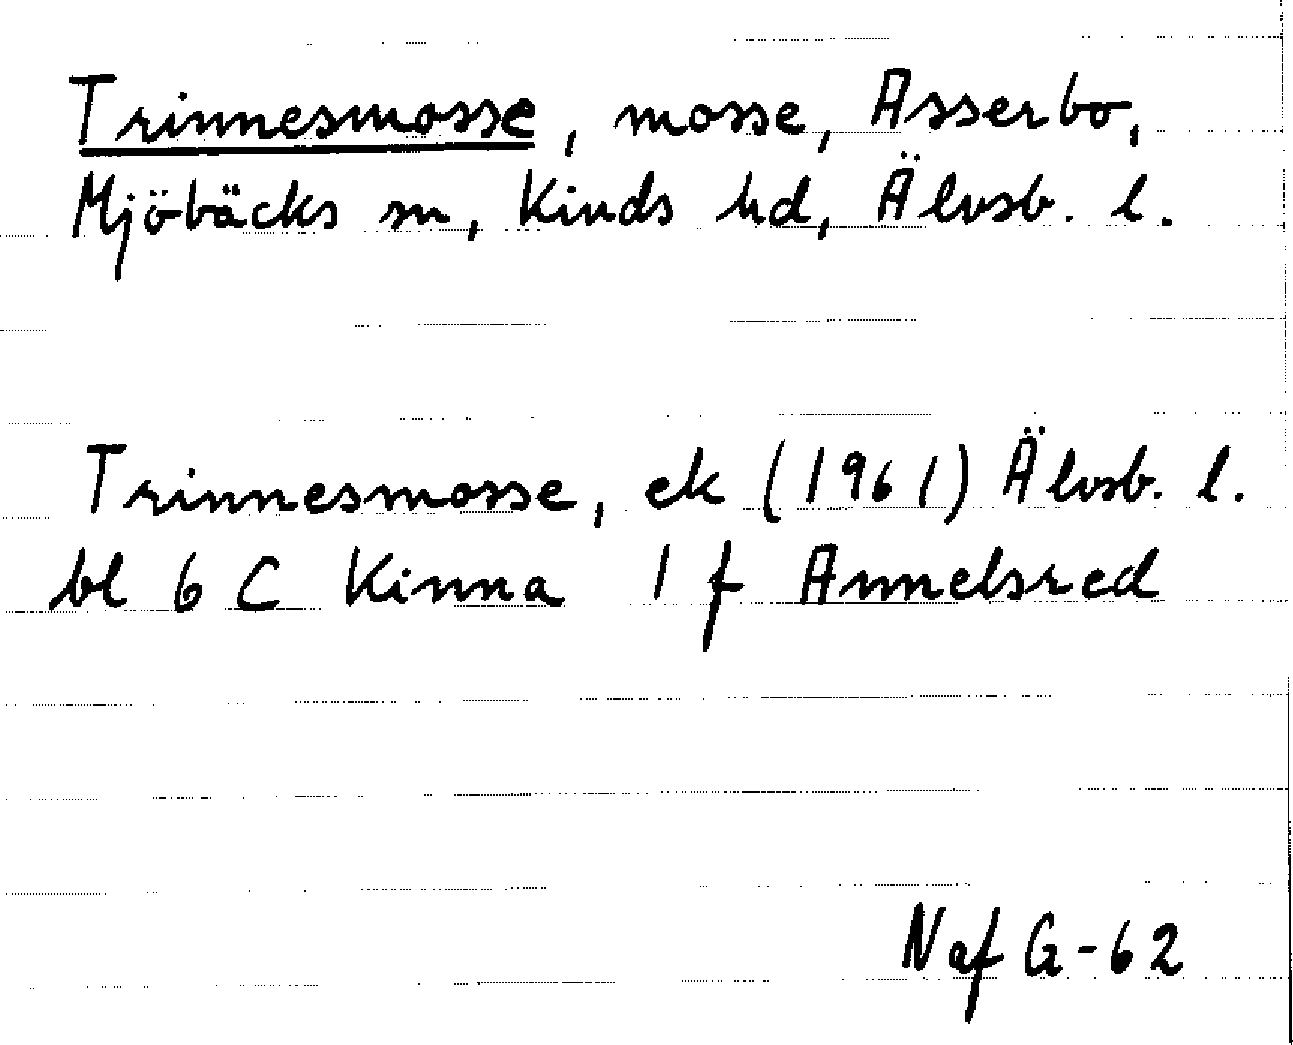 Trinnesmosse, mosse, Asserbo,
Mjöbäcks sn, Kinds hd, Älvsb. l.
Trinnesmosse, ek (1961) Älvsb. l.
bl 6 C Kinna 1 f Annelsred
Naf G-62